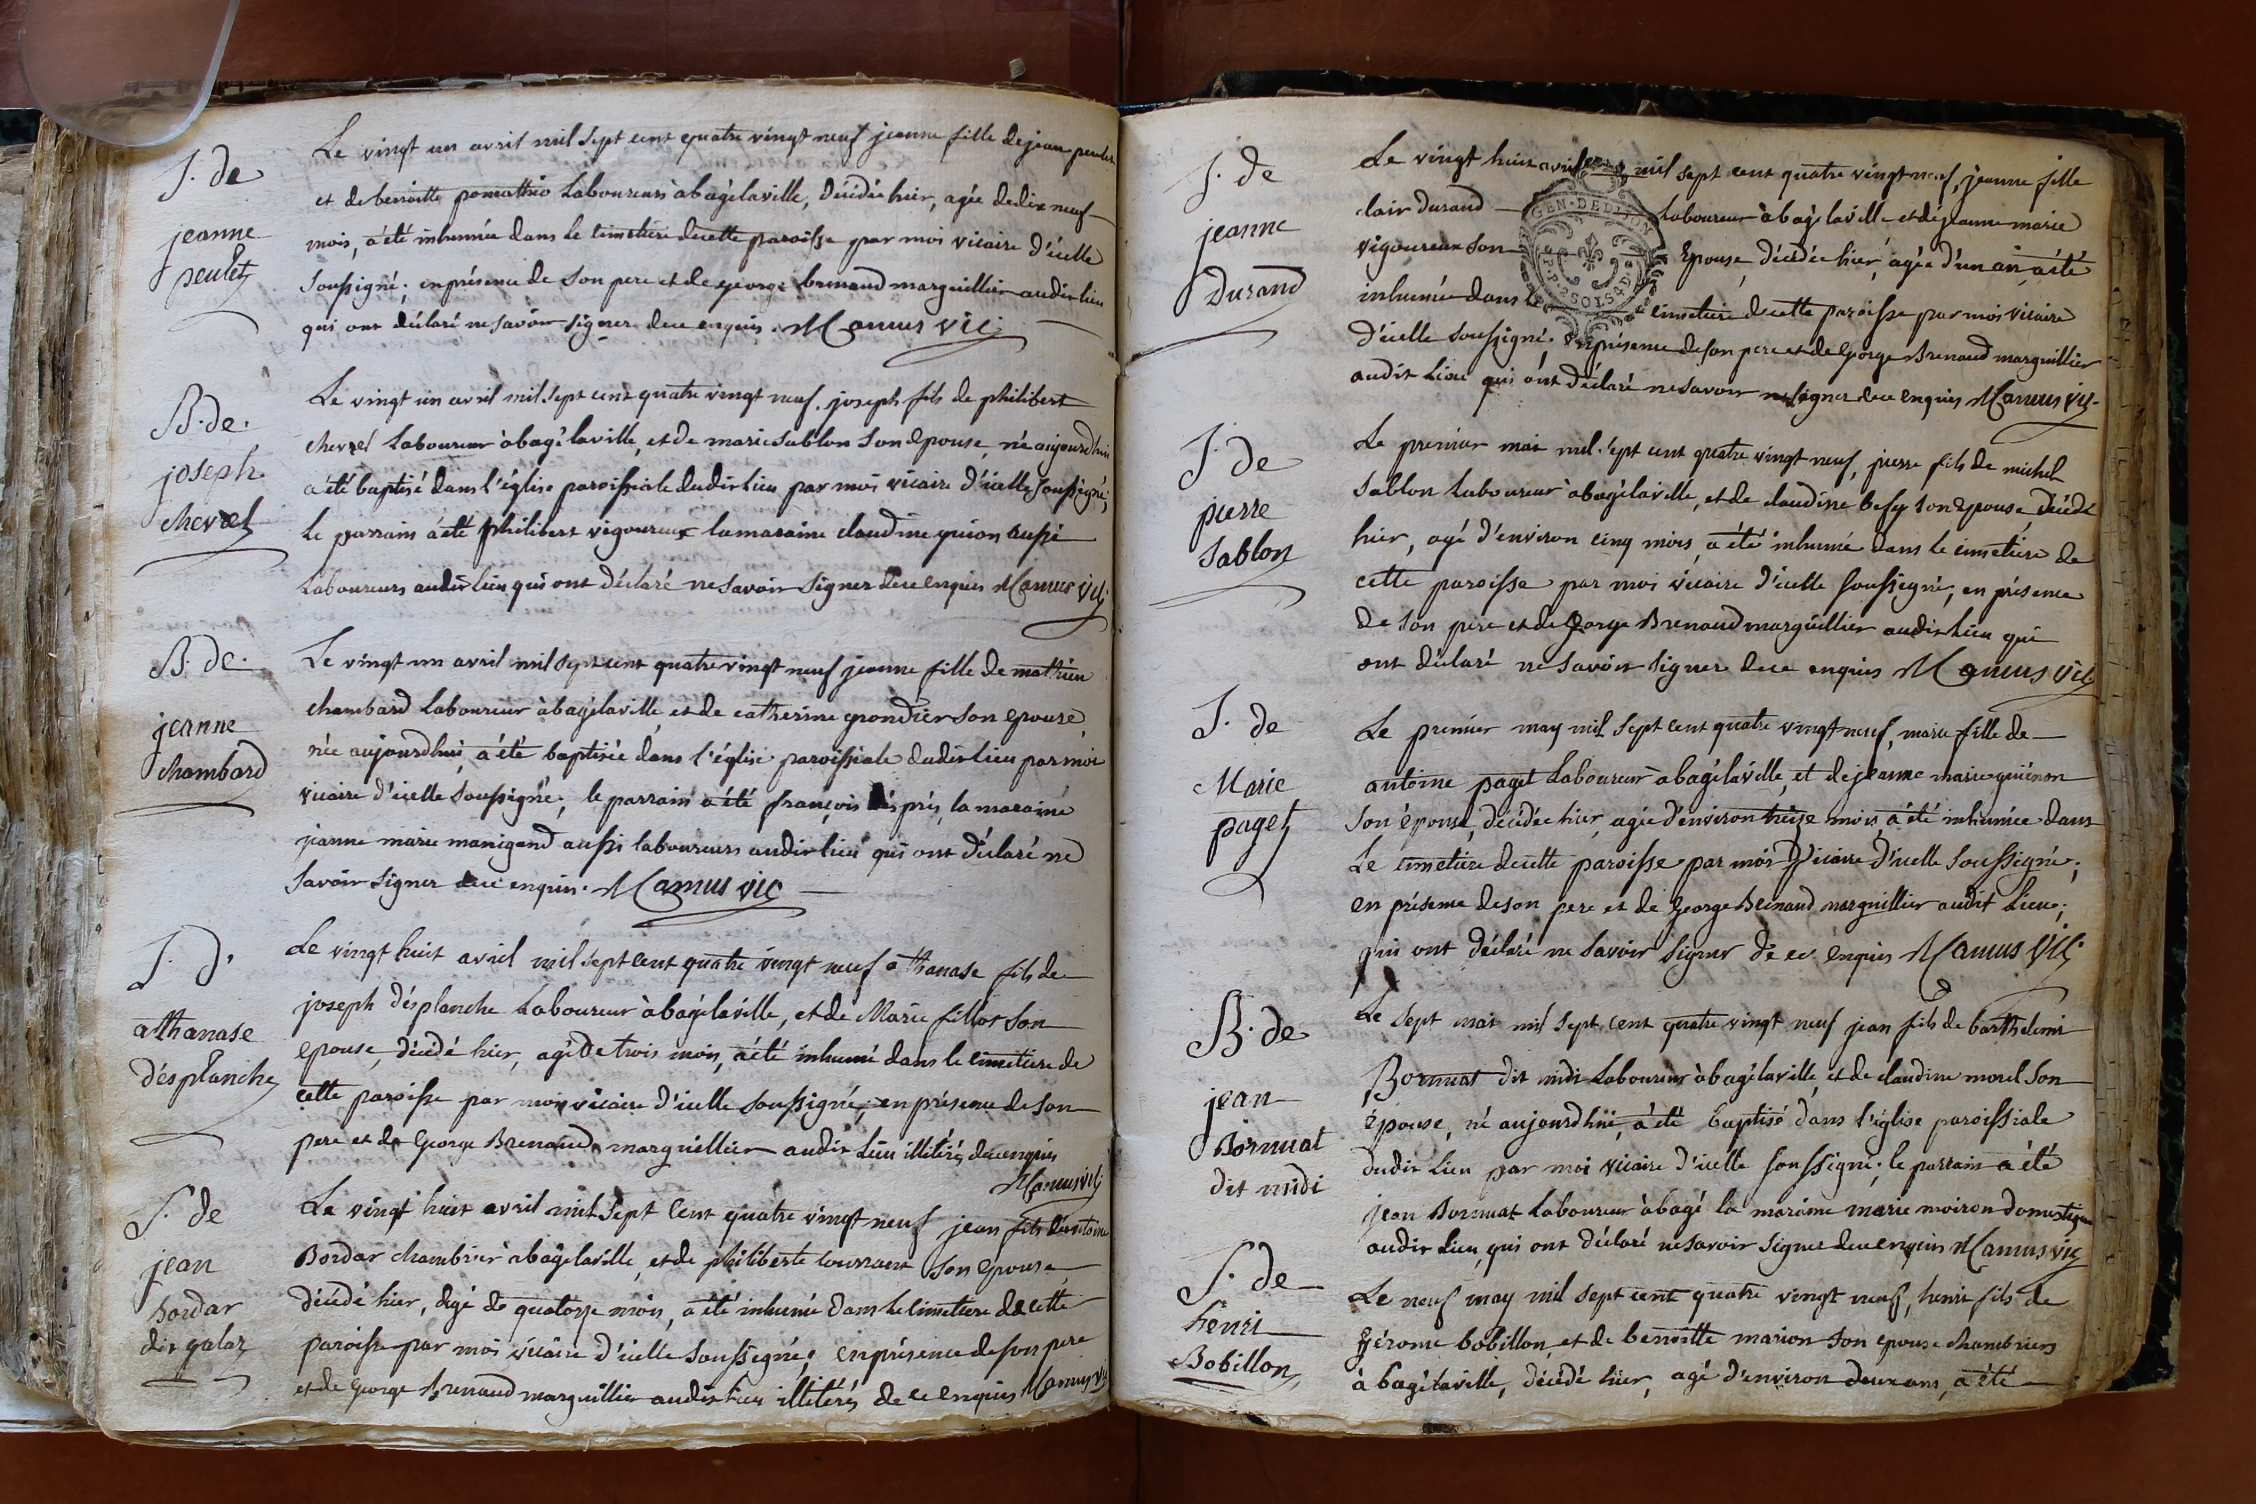 S. de
jeanne
peulet
Le vingt un avril mil sept cent quatre vingt neuf jeanne fille de jean peulet
et de benoitte pomathio Laboureurs à bagé laville, décédée hier, agée de dix neuf
mois, a été inhumée dans le cimetiere de cette paroisse par moi vicaire d'icelle
soussigné; en présence de son pere et de george brenaud marguillier audit lieu
qui ont déclaré ne savoir signer de ce enquis. M Camus vic
B. de.
joseph
chevrel
Le vingt un avril mil sept cent quatre vingt neuf, joseph fils de philibert
chevrel Laboureur à bagé laville, et de marie sablon son epouse, né aujourdhui
a été baptisé dans l'église paroissiale dudit lieu par moi vicaire d'icelle soussigné;
le parrain a été philibert vigoureux la maraine claudine guion aussi
Laboureurs audit lieu qui ont déclaré ne savoir signer de ce enquis M Camus vic
B. de.
jeanne
chambard
Le vingt un avril mil sept cent quatre vingt neuf jeanne fille de mathieu
chambard Laboureur à bagé laville et de catherine grondier son epouse,
née aujourdhui, a été baptisée dans l'église paroissiale dudit lieu par moi
vicaire d'icelle soussigné; le parrain a été françois després, la maraine
jeanne marie manigand aussi laboureurs audit lieu qui ont déclaré ne
savoir signer de ce enquis. M Camus vic
S. d'
athanase
désplanche
Le vingt huit avril mil sept cent quatre vingt neuf athanase fils de
joseph désplanche Laboureur à bagé laville, et de Marie fillot son
epouse, décédé hier, agé de trois mois, a été inhumé dans le cimetiere de
cette paroisse par moy vicaire d'icelle soussigné, en présence de son
pere et de George Brenaud marguillier audit lieu illitérés de ce enquis
M Camus vic
S. de
jean
bordar
dit galaz
Le vingt huit avril mil sept cent quatre vingt neuf jean fils d'antoine
Bordar chambrier à bagé laville et de philiberte son epouse
décédé hier, agé de quatorze mois, a été inhumé dans le cimetiere de cette
paroisse par moi vicaire d'icelle soussigné; en présence de son pere
et de George brenaud marguillier audit lieu illitérés de ce enquis M Camus vic
S. de
jeanne
Durand
Le vingt huit avril mil sept cent quatre vingt neuf, jeanne fille
clair Durand Laboureur à bagé laville et de jeanne marie
vigoureux son Epouse, décédée hier, agée d'un an a été
inhumée dans le cimetiere de cette paroisse par moi vicaire
d'icelle soussigné. en présence de son pere et de George Brenaud marguillier
audit lieu qui ont déclaré ne savoir signer de ce enquis M Camus vic.
GEN. DE DIJON
2 SOLS 4 D
S. de
pierre
sablon
Le premier mai mil sept cent quatre vingt neuf, pierre fils de michel
sablon Laboureur à bagé laville, et de claudine besy son epouse, décédé
hier, agé d'environ cinq mois, a été inhumé dans le cimetiere de
cette paroisse par moi vicaire d'icelle soussigné, en présence
de son pere et de George Brenaud marguillier audit lieu qui
ont déclaré ne savoir signer de ce enquis M Camus vic
S. de
Marie
paget
Le premier may mil sept cent quatre vingt neuf, marie fille de
antoine paget Laboureur à bagé laville, et de jeanne marie guienon
son épouse, décédée hier, agée d'environ treize mois, a été inhumée dans
Le cimetiere de cette paroisse par moi vicaire d'icelle soussigné;
en présence de son pere et de George Brenaud marguillier audit Lieu;
qui ont déclaré ne savoir signer de ce enquis M Camus vic
B. de
jean
Bornuat
dit midi
Le sept mai mil sept cent quatre vingt neuf jean fils de barthelemi
Bornuat dit midi Laboureur à bagé laville, et de claudine morel son
épouse, né aujourdhui, a été baptisé dans l'église paroissiale
dudit lieu par moi vicaire d'icelle soussigné; le parrain a été
jean Bornuat Laboureur à bagé la maraine marie moiron domestique
audit lieu, qui ont déclaré ne savoir signer de ce enquis M Camus vic
S. de
henri
Bobillon
Le neuf may mil sept cent quatre vingt neuf, henri fils de
Gérome bobillon, et de benoitte marion son epouse chambriers
à bagé laville, décédé hier, agé d'environ deux ans, a été